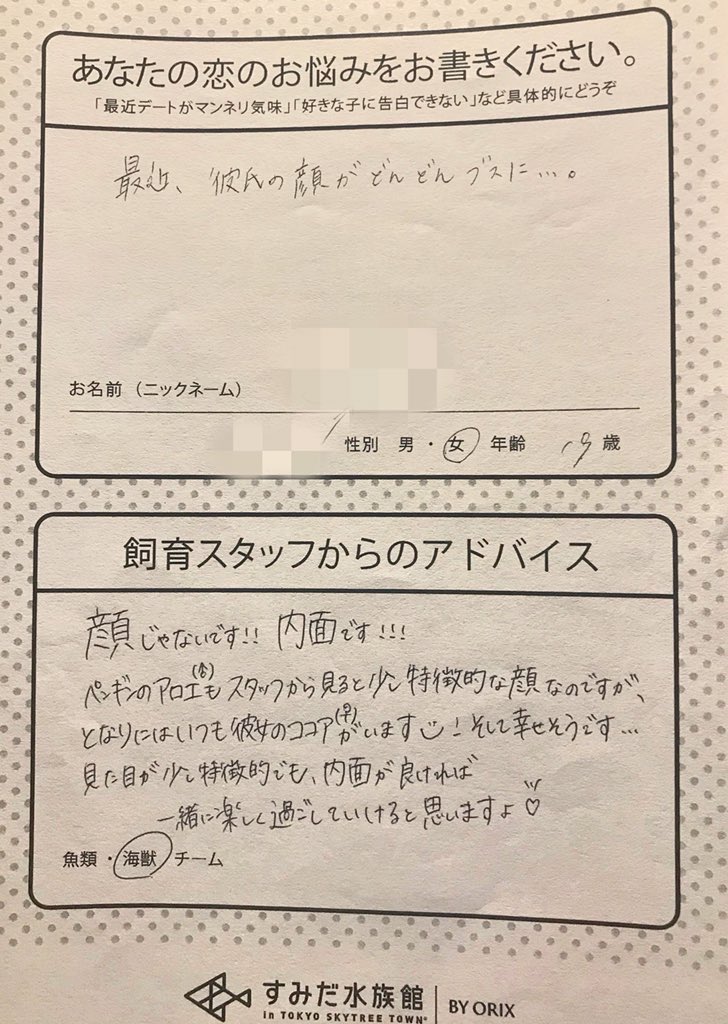 あなたの恋のお悩みをお書きください。
「最近デートがマンネリ気味」「好きな子に告白できない」など具体的にどうぞ
最近、彼氏の顔がどんどんブスに…。
お名前（ニックネーム）
性別 男・女 年齢 19 歳
飼育スタッフからのアドバイス
顔じゃないです!! 内面です!!!
ペンギンのアロエ(♂)もスタッフから見ると少し特徴的な顔なのですが、
となりにはいつも彼女のココア(♀)がいます! そして幸せそうです…
見た目が少し特徴的でも、内面が良ければ
一緒に楽しく過ごしていけると思いますよ♡
魚類・海獣チーム
すみだ水族館 BY ORIX
in TOKYO SKYTREE TOWN®